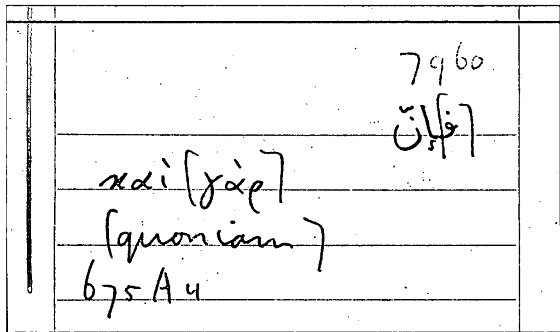 7960
[ف]إنّ
καὶ [γὰρ]
[quoniam]
675 A 4